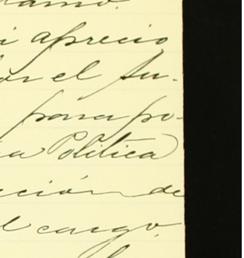 i aprecio
el su-
para po-
a Política
ción de
l cargo